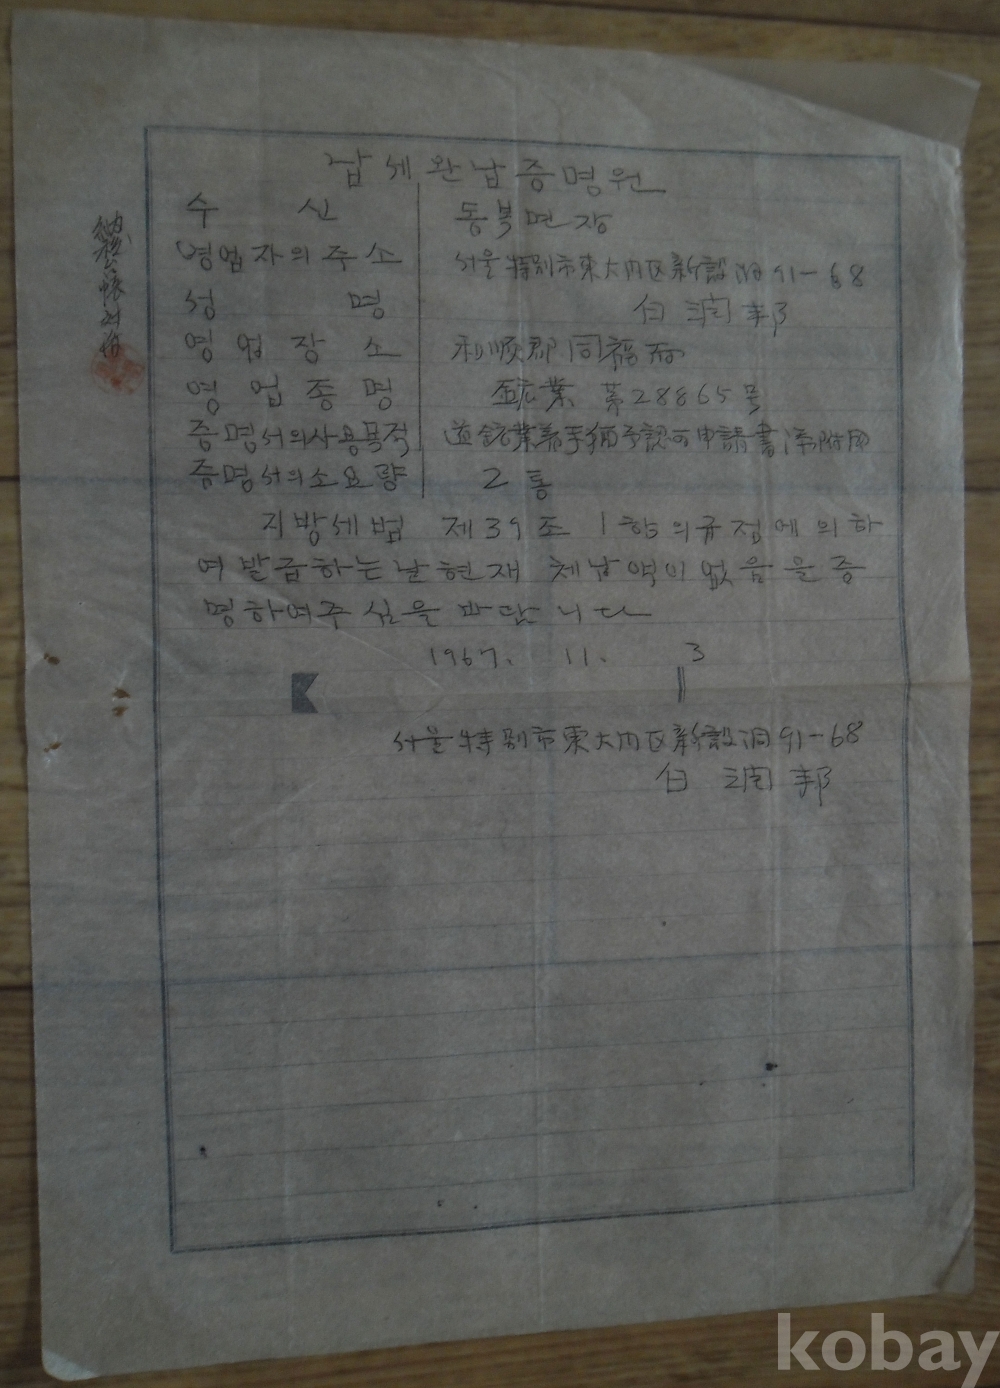 납세완납증명원
수신 동복면장
영업자의주소 서울特別市東大门区新設洞91-68
성명 白潤邦
영업장소 和順郡同福面
영업종명 鉱業 第28865号
증명서의사용목적 鉱業 認可申請書添附用
증명서의소요량 2통
지방세법 제39조 1항의규정에의하
여발급하는날현재 체납액이없음을증
명하여주심을바랍니다
1967. 11. 3
서울特別市東大门区新設洞91-68
白潤邦
kobay